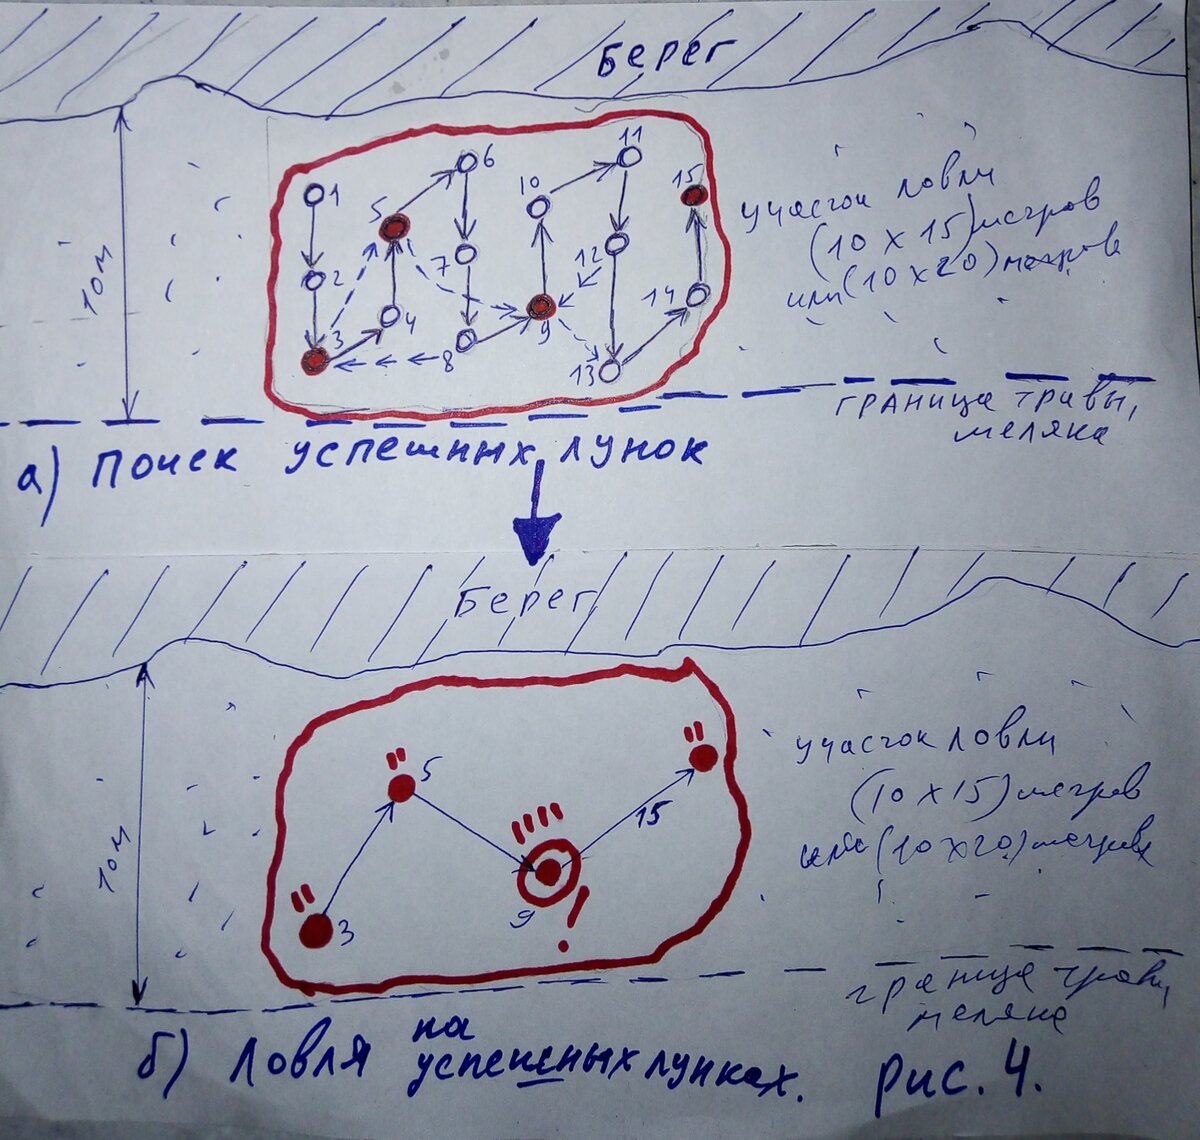 Берег
11
6
1
10
15
5
участок ловли
(10 х 15) метров
или (10 х 20) метров
12
7
2
10м
14
3
4
9
8
13
граница травы,
меляка
а) Поиск успешных лунок
Берег
участок ловли
5
(10 х 15) метров
15
или (10 х 20) метров
10м
9
!
3
граница травы,
меляка
б) Ловля на
успешных лунках.
рис. 4.